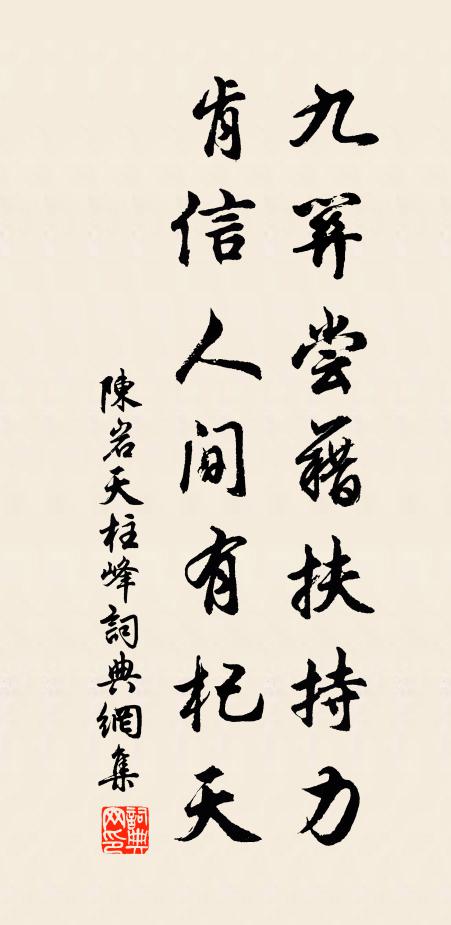 九尝藉扶持力
肯信人间有杞天
陳岩天柱峰詞典網集
詞典
网印